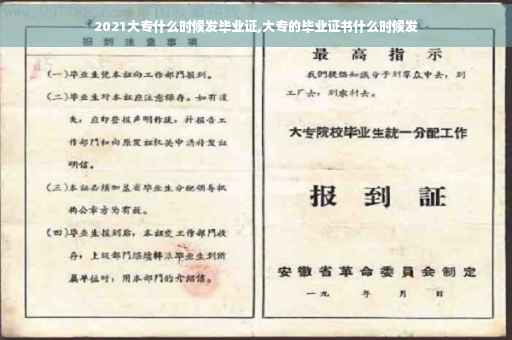 2021大专什么时候发毕业证,大专的毕业证书什么时候发
报到注意事项
(一)毕业生凭本证向工作部门报到。
(二)毕业生对本证应注意保存。如有遗
失,应即登报声明作废,并报告工
作部门和向原发证机关申请补发证
明信。
(三)本证必须加盖省毕业生分配领导机
构公章方为有效。
(四)毕业生报到后,本证交工作部门收
存;上级部门
毕业生到所
属单位时,用本部门的介绍信。
最高指示
我们提倡知识分子到群众中去,到
工厂去,到农村去。
大专院校毕业生統一分配工作
报到証
安徽省革命委員会制定
一九 年 月 日